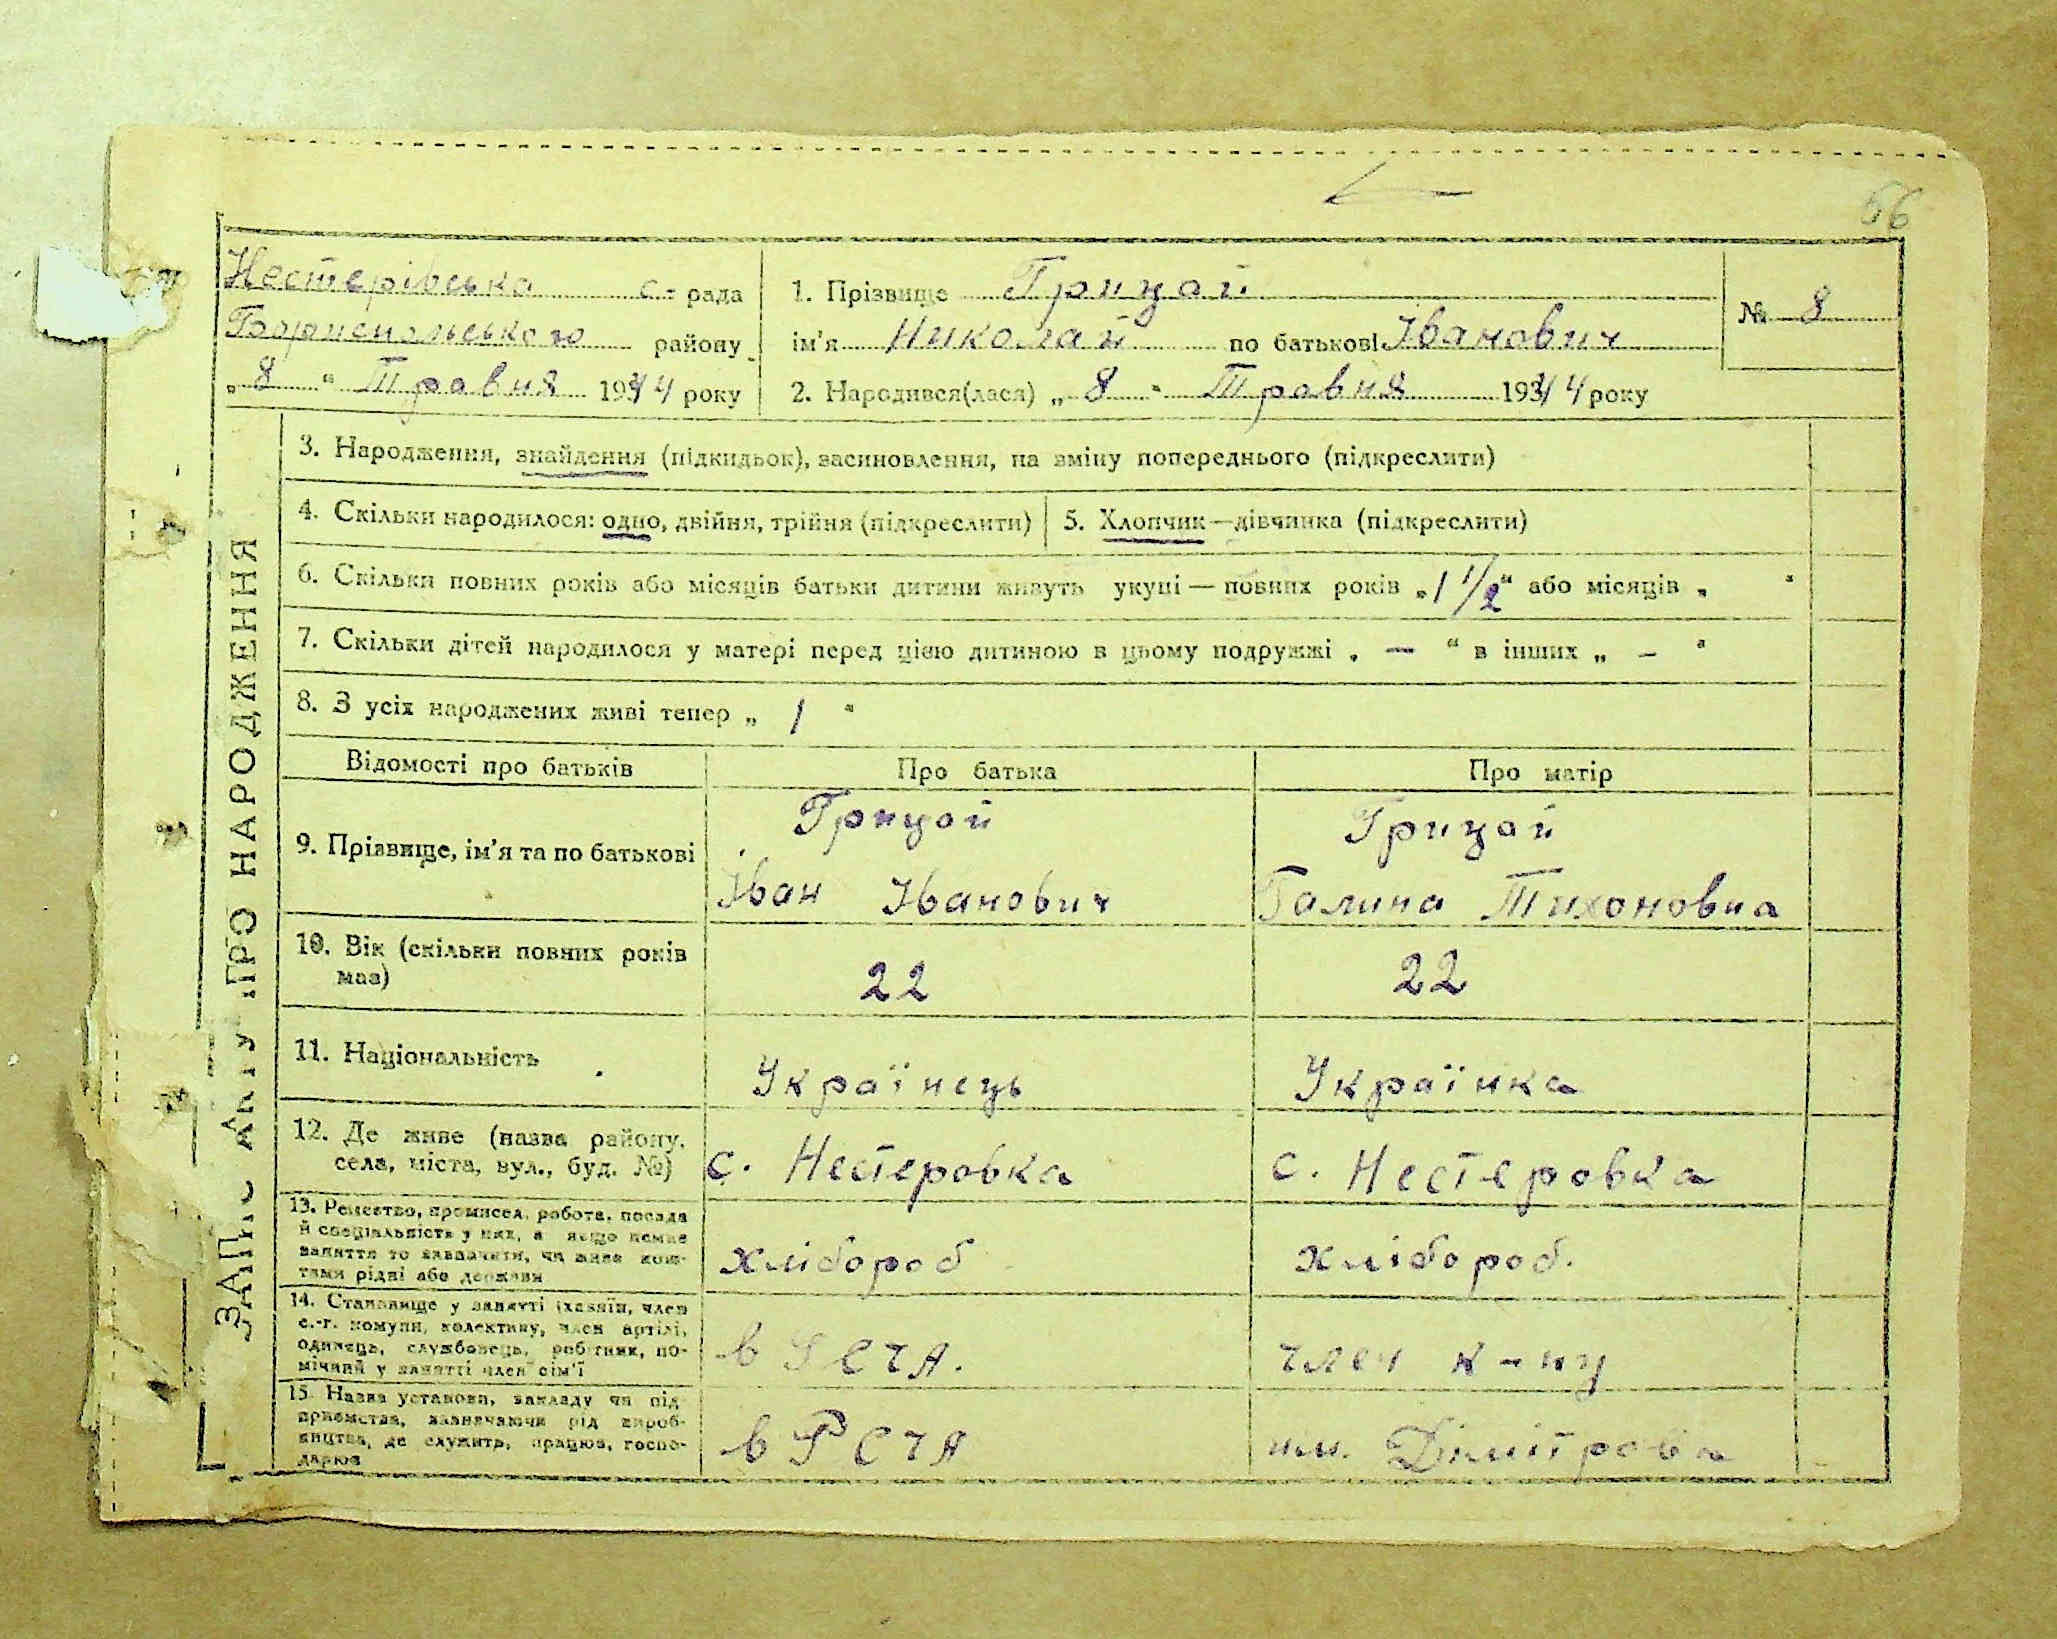 56
Нестерівська с- рада
Бориспольського району
„ 8 “ Травня 1944 року
1. Прізвище Грицай
ім'я Николай по батькові Іванович
2. Народився(лася) „ 8 “ Травня 1944 року
№ 8
ЗАПИС АКТУ ПРО НАРОДЖЕННЯ
3. Народження, знайдення (підкидьок), засиновлення, на зміну попереднього (підкреслити)
4. Скільки народилося: одно, двійня, трійня (підкреслити)
5. Хлопчик—дівчинка (підкреслити)
6. Скільки повних років або місяців батьки дитини живуть укупі — повних років „1 1/2“ або місяців „ “
7. Скільки дітей народилося у матері перед цією дитиною в цьому подружжі „ — “ в інших „ – “
8. З усіх народжених живі тепер „ 1 “
Відомості про батьків Про батька Про матір
9. Прізвище, ім'я та по батькові
Грицай
Іван Іванович
Грицай
Галина Тихоновна
10. Вік (скільки повних років
має)
22
22
11. Національність
Українець
Українка
12. Де живе (назва району,
села, міста, вул., буд. №)
с. Нестеровка
с. Нестеровка
13. Ремество, промисел, робота, посада
й спеціальність у них, а якщо немає
заняття то зазначити, чи живе кош-
тами рідні або держави
хлібороб
хлібороб.
14. Становище у занятті (хазяїн, член
с.-г. комуни, колективу, член артілі,
одинець, службовець, робітник, по-
мічний у занятті член сім'ї
в РСЧА.
член к-пу
15. Назва установи, закладу чи під-
приємства, зазначаючи рід вироб-
ництва, де служить, працює, госпо-
дарює
в РСЧА
им. Дімітрова